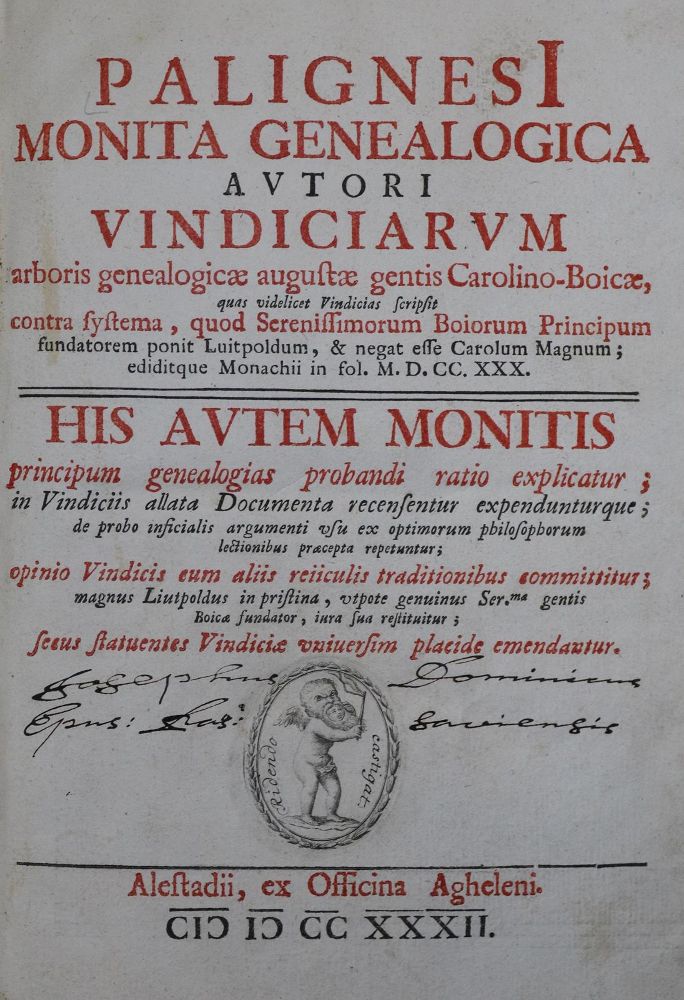 PALIGNESI
MONITA GENEALOGICA
AVTORI
VINDICIARVM
arboris genealogicæ auguſtæ gentis Carolino-Boicæ,
quas videlicet Vindicias ſcripſit
contra ſyſtema, quod Sereniſſimorum Boiorum Principum
fundatorem ponit Luitpoldum, & negat eſſe Carolum Magnum;
ediditque Monachii in fol. M. D. CC. XXX.
HIS AVTEM MONITIS
principum genealogias probandi ratio explicatur;
in Vindiciis allata Documenta recenſentur expendunturque;
de probo inficialis argumenti vſu ex optimorum philoſophorum
lectionibus præcepta repetuntur;
opinio Vindicis cum aliis reiiculis traditionibus committitur;
magnus Liutpoldus in priſtina, vtpote genuinus Ser.ma gentis
Boicæ fundator, iura ſua reſtituitur;
ſecus ſtatuentes Vindiciæ vniuerſim placide emendantur.
Josephus Dominicus
Epus: Pas: saviensis
Ridendo castigat.
Aleſtadii, ex Officina Agheleni.
CIↃ IↃ CC XXXII.